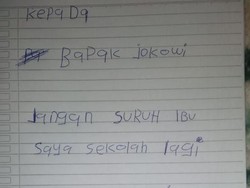 kepaDa
BaPak jokowi
Jangan SURUH IBU
Saya sekolah lagi